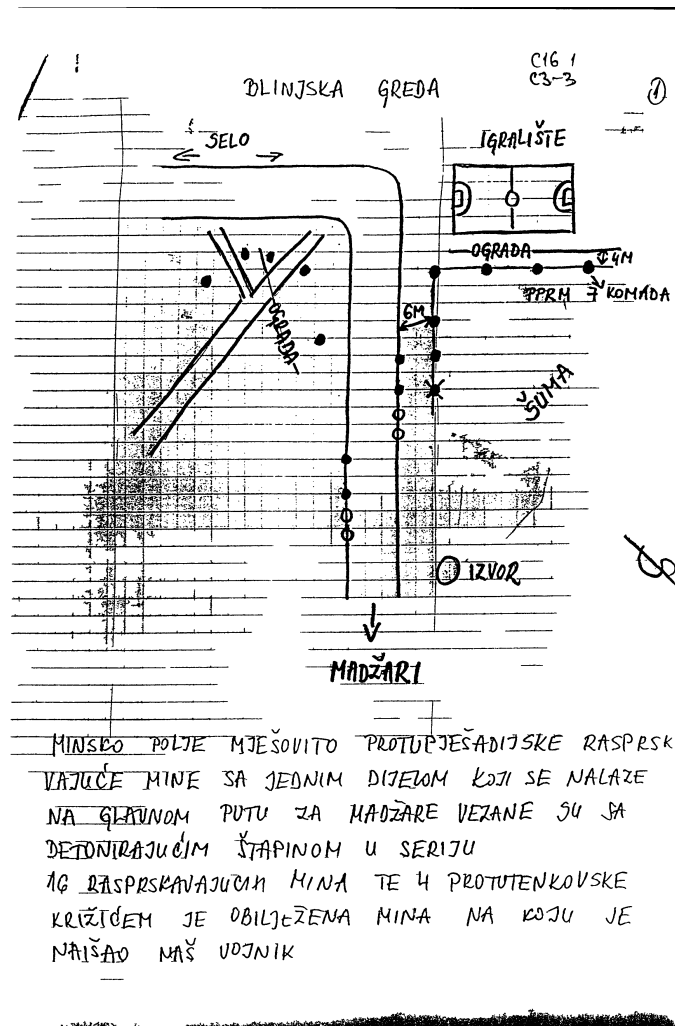 C16 1
C3-3
1
BLINJSKA GREDA
SELO
IGRALIŠTE
OGRADA
4M
PPRM 7 KOMADA
6M
OGRADA
ŠUMA
IZVOR
MADŽARI
MINSKO POLJE MJEŠOVITO PROTUPJEŠADIJSKE RASPRSK
VAJUĆE MINE SA JEDNIM DIJELOM KOJI SE NALAZE
NA GLAVNOM PUTU ZA MADŽARE VEZANE SU SA
DETONIRAJUĆIM ŠTAPINOM U SERIJU
16 RASPRSKAVAJUCIH MINA TE 4 PROTUTENKOVSKE
KRIŽIĆEM JE OBILJEŽENA MINA NA KOJU JE
NAIŠAO NAŠ VOJNIK